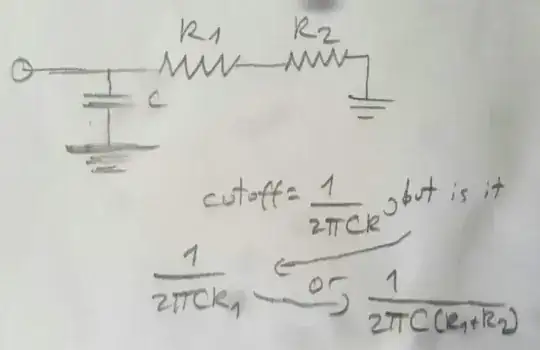 R1 R2
C
cutoff = 1/2πCR, but is it
1/2πCR1 or 1/2πC(R1+R2)